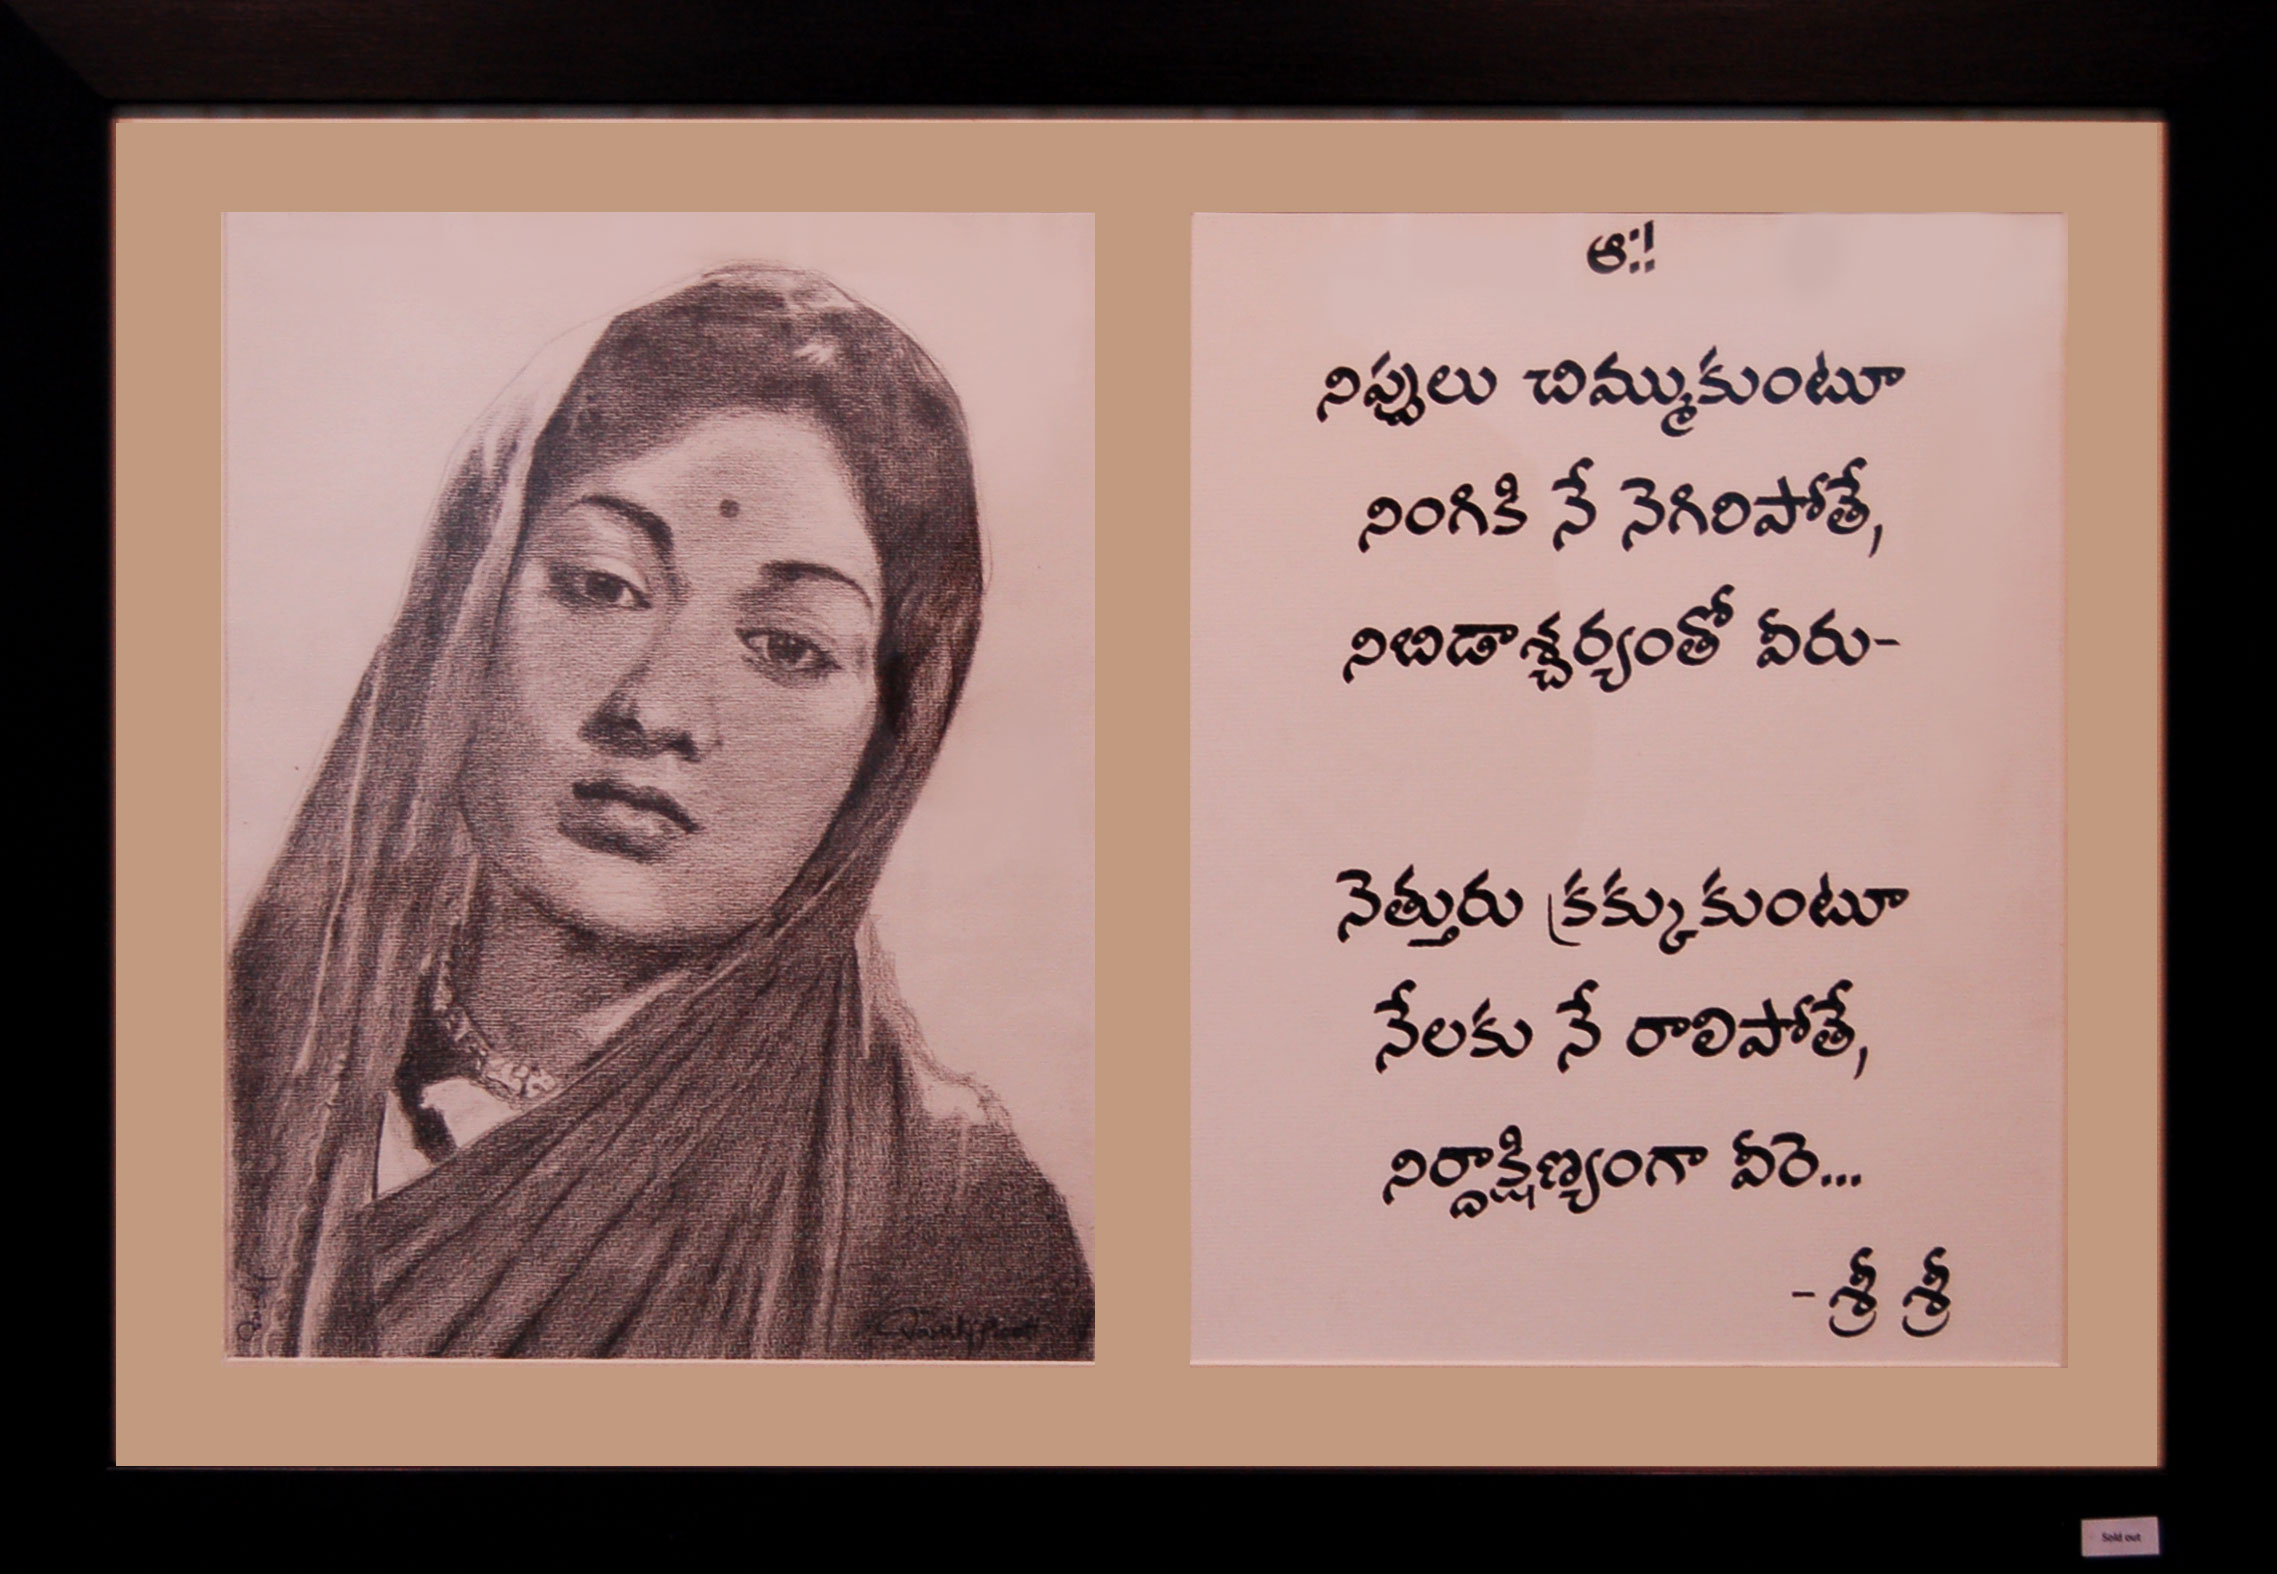 ఆ:!
నిప్పులు చిమ్ముకుంటూ
నింగికి నే నెగిరిపోతే,
నిబిడాశ్చర్యంతో వీరు-
నెత్తురు క్రక్కుకుంటూ
నేలకు నే రాలిపోతే,
నిర్దాక్షిణ్యంగా వీరె...
- శ్రీ శ్రీ
Sold out